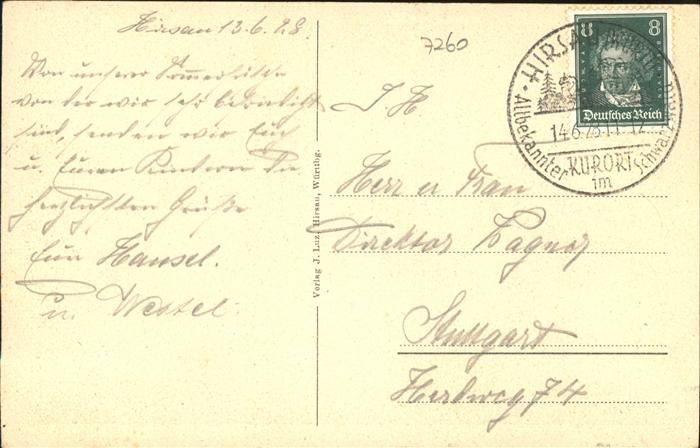 Hirsau 13.6.28.
Von unserer Sommerfrische
von der wir sehr befriedigt
sind, senden wir Euch
u. Euren Kindern die
herzlichsten Grüße
Eure Hansel.
u.
7260
Herr u Frau
Direktor Wagner
Stuttgart
Herdweg 74
Verlag J. Luz, Hirsau, Württbg.
8 8
Deutsches Reich
HIRSAU
14.6.28.11-12
Altbekannter KURORT
im Schwarzwald